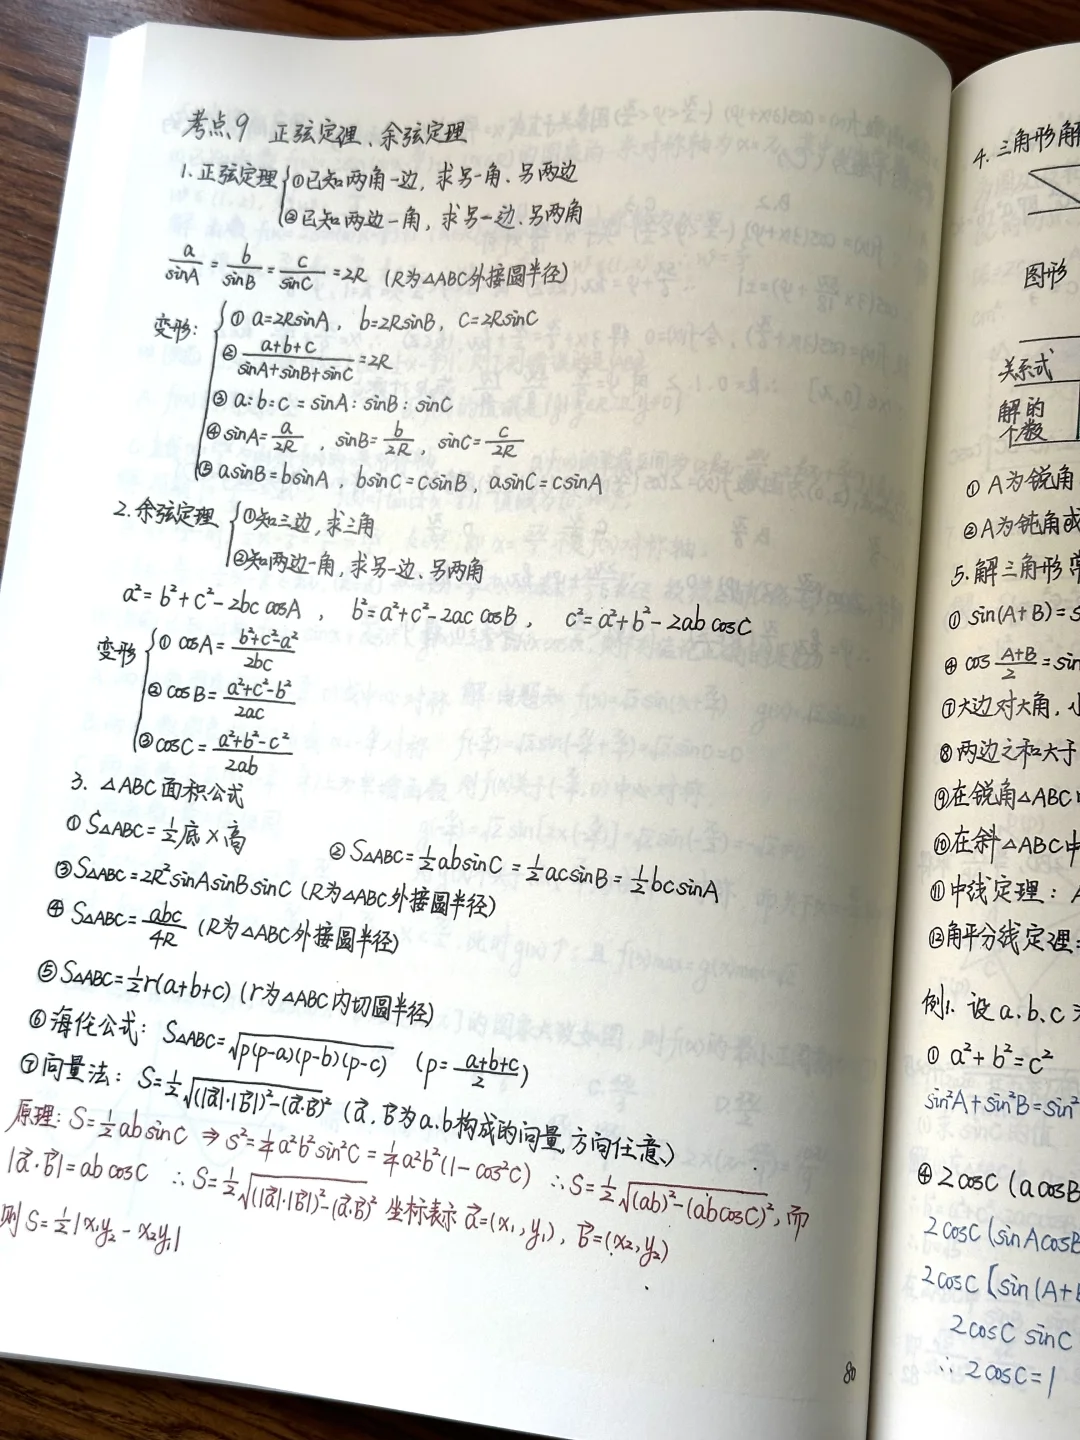 考点9 正弦定理、余弦定理
1.正弦定理{①已知两角一边,求另一角、另两边
②已知两边一角,求另一边、另两角
a/sinA = b/sinB = c/sinC = 2R (R为△ABC外接圆半径)
变形:{① a=2RsinA, b=2RsinB, c=2RsinC
② (a+b+c)/(sinA+sinB+sinC) = 2R
③ a:b:c = sinA:sinB:sinC
④ sinA=a/2R, sinB=b/2R, sinC=c/2R
⑤ asinB=bsinA, bsinC=csinB, asinC=csinA
2.余弦定理{①知三边,求三角
②知两边一角,求另一边、另两角
a²=b²+c²-2bc cosA, b²=a²+c²-2ac cosB, c²=a²+b²-2ab cosC
变形{① cosA=(b²+c²-a²)/2bc
② cosB=(a²+c²-b²)/2ac
③ cosC=(a²+b²-c²)/2ab
3. △ABC面积公式
① S△ABC=½底×高 ② S△ABC=½absinC=½acsinB=½bcsinA
③ S△ABC=2R²sinAsinBsinC (R为△ABC外接圆半径)
④ S△ABC=abc/4R (R为△ABC外接圆半径)
⑤ S△ABC=½r(a+b+c) (r为△ABC内切圆半径)
⑥ 海伦公式: S△ABC=√(p(p-a)(p-b)(p-c)) (p=(a+b+c)/2)
⑦ 向量法: S=½√((|a⃗|·|b⃗|)²-(a⃗·b⃗)²) (a⃗、b⃗为a、b构成的向量,方向任意、)
原理: S=½absinC ⇒ S²=¼a²b²sin²C=¼a²b²(1-cos²C) ∴S=½√((ab)²-(abcosC)²),而
|a⃗·b⃗|=abcosC ∴S=½√((|a⃗|·|b⃗|)²-(a⃗·b⃗)²) 坐标表示 a⃗=(x₁,y₁), b⃗=(x₂,y₂)
则 S=½|x₁y₂-x₂y₁|
80
4.三角形解
图形
关系式
解的
个数
① A为锐角
② A为钝角或
5.解三角形常
① sin(A+B)=s
④ cos (A+B)/2=sin
⑦大边对大角,小
⑧两边之和大于
⑨在锐角△ABC
⑩在斜△ABC中
⑪中线定理: A
⑫角平分线定理:
例1.设a、b、c
① a²+b²=c²
sin²A+sin²B=sin²
④ 2cosC(acosB
2cosC(sinAcosB
2cosC[sin(A+B
2cosC sinC
∴ 2cosC=1